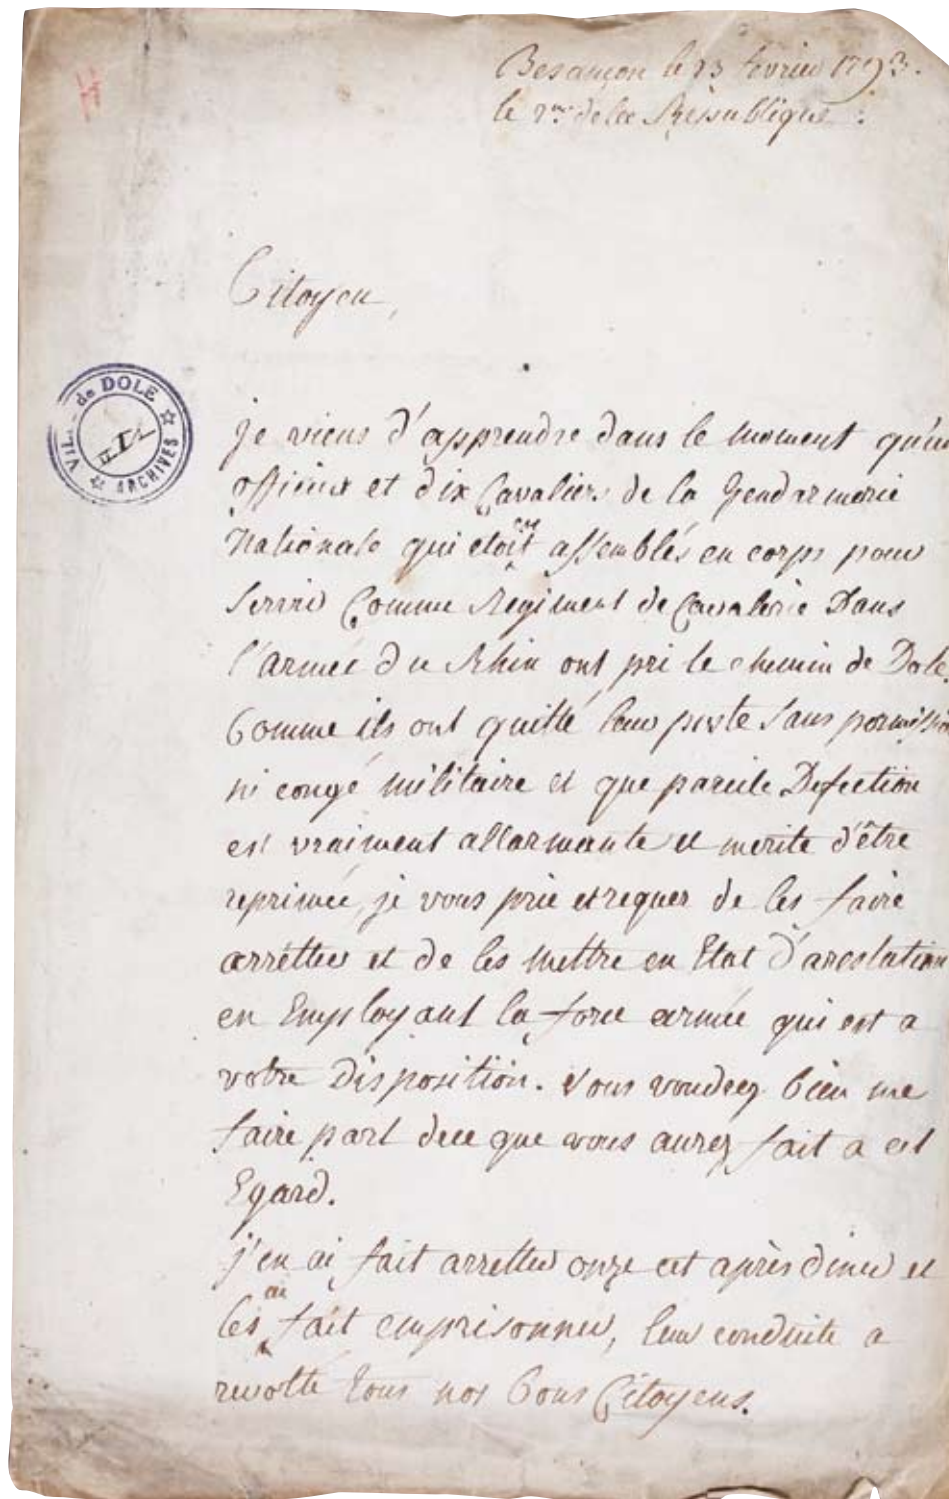 Besançon le 23 fevrier 1793.
le 2me de la Republique.
Citoyen,
VILLE de DOLE
ARCHIVES
je viens d'apprendre dans le moment qu'un
officier et dix Cavaliers de la Gendarmerie
Nationale qui etoient assemblés en corps pour
Servir Comme Regiment de Cavalerie Dans
l'armée du Rhin ont pri le chemin de Dole.
Comme ils ont quitté leur poste sans permission
ni congé militaire et que pareile Defection
est vraiment allarmante et merite d'être
reprimée, je vous prie et requer de les faire
arrêtter et de les mettre en Etat d'arestation
en Employant la force armée qui est a
votre Disposition. Vous voudrez bien me
faire part de ce que vous aurez fait a cet
Egard.
j'en ai fait arretter onze cet après diner et
les ai fait emprisonner, leur conduite a
revolté tous nos bons Citoyens.